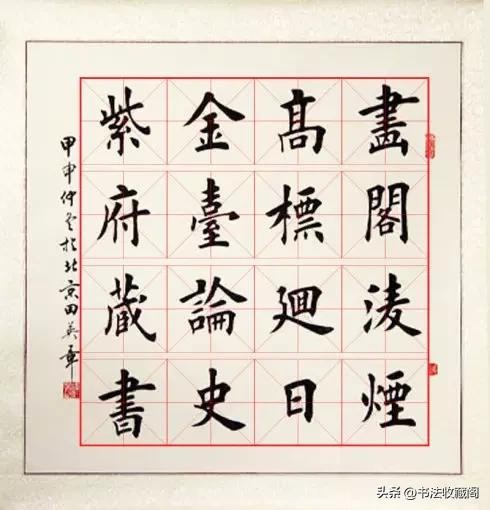 畫閣淩煙
髙標廻日
金臺論史
紫府藏書
甲申仲冬於北京田英章
头条 @书法收藏阁